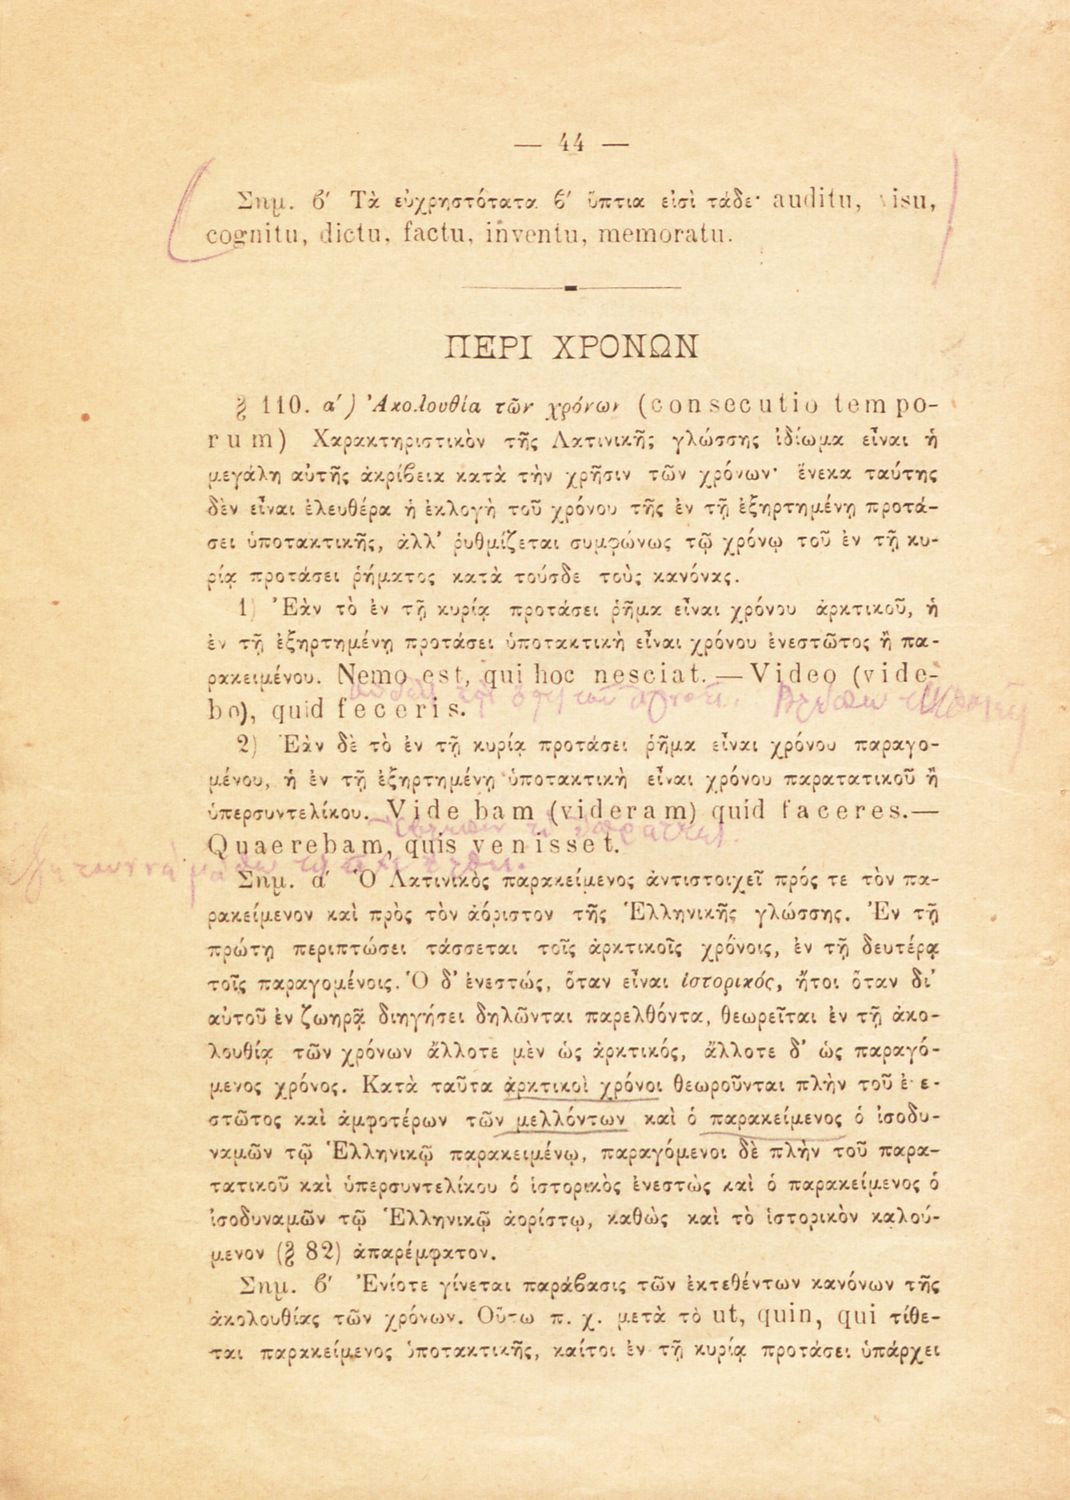 — 44 —
Σημ. ϐ′ Τὰ εὐχρηστότατα ϐ′ ὕπτια εἰσὶ τάδε· auditu, visu,
cognitu, dictu, factu, inventu, memoratu.
ΠΕΡΙ ΧΡΟΝΩΝ
§ 110. α′) Ἀκολουθία τῶν χρόνων (consecutio tempo-
rum) Χαρακτηριστικὸν τῆς Λατινικῆς γλώσσης ἰδίωμα εἶναι ἡ
μεγάλη αὐτῆς ἀκρίϐεια κατὰ τὴν χρῆσιν τῶν χρόνων· ἕνεκα ταύτης
δὲν εἶναι ἐλευθέρα ἡ ἐκλογὴ τοῦ χρόνου τῆς ἐν τῇ ἐξηρτημένῃ προτά-
σει ὑποτακτικῆς, ἀλλ’ ῥυθμίζεται συμφώνως τῷ χρόνῳ τοῦ ἐν τῇ κυ-
ρίᾳ προτάσει ῥήματος κατὰ τούσδε τοὺς κανόνας.
1) Ἐὰν τὸ ἐν τῇ κυρίᾳ προτάσει ῥῆμα εἶναι χρόνου ἀρκτικοῦ, ἡ
ἐν τῇ ἐξηρτημένῃ προτάσει ὑποτακτικὴ εἶναι χρόνου ἐνεστῶτος ἢ πα-
ρακειμένου. Nemo est, qui hoc nesciat.—Video (vide-
bo), quid feceris.
2) Ἐὰν δὲ τὸ ἐν τῇ κυρίᾳ προτάσει ῥῆμα εἶναι χρόνου παραγο-
μένου, ἡ ἐν τῇ ἐξηρτημένῃ ὑποτακτικὴ εἶναι χρόνου παρατατικοῦ ἢ
ὑπερσυντελίκου. Videbam (videram) quid faceres.—
Quaerebam, quis venisset.
Σημ. α′ Ὁ Λατινικὸς παρακείμενος ἀντιστοιχεῖ πρός τε τὸν πα-
ρακείμενον καὶ πρὸς τὸν ἀόριστον τῆς Ἑλληνικῆς γλώσσης. Ἐν τῇ
πρώτῃ περιπτώσει τάσσεται τοῖς ἀρκτικοῖς χρόνοις, ἐν τῇ δευτέρᾳ
τοῖς παραγομένοις. Ὁ δ’ ἐνεστώς, ὅταν εἶναι ἱστορικός, ἤτοι ὅταν δι’
αὐτοῦ ἐν ζωηρᾷ διηγήσει δηλῶνται παρελθόντα, θεωρεῖται ἐν τῇ ἀκο-
λουθίᾳ τῶν χρόνων ἄλλοτε μὲν ὡς ἀρκτικός, ἄλλοτε δ’ ὡς παραγό-
μενος χρόνος. Κατὰ ταῦτα ἀρκτικοὶ χρόνοι θεωροῦνται πλὴν τοῦ ἐνε-
στῶτος καὶ ἀμφοτέρων τῶν μελλόντων καὶ ὁ παρακείμενος ὁ ἰσοδυ-
ναμῶν τῷ Ἑλληνικῷ παρακειμένῳ, παραγόμενοι δὲ πλὴν τοῦ παρα-
τατικοῦ καὶ ὑπερσυντελίκου ὁ ἱστορικὸς ἐνεστὼς καὶ ὁ παρακείμενος ὁ
ἰσοδυναμῶν τῷ Ἑλληνικῷ ἀορίστῳ, καθὼς καὶ τὸ ἱστορικὸν καλού-
μενον (§ 82) ἀπαρέμφατον.
Σημ. ϐ′ Ἐνίοτε γίνεται παράϐασις τῶν ἐκτεθέντων κανόνων τῆς
ἀκολουθίας τῶν χρόνων. Οὕτω π. χ. μετὰ τὸ ut, quin, qui τίθε-
ται παρακείμενος ὑποτακτικῆς, καίτοι ἐν τῇ κυρίᾳ προτάσει ὑπάρχει